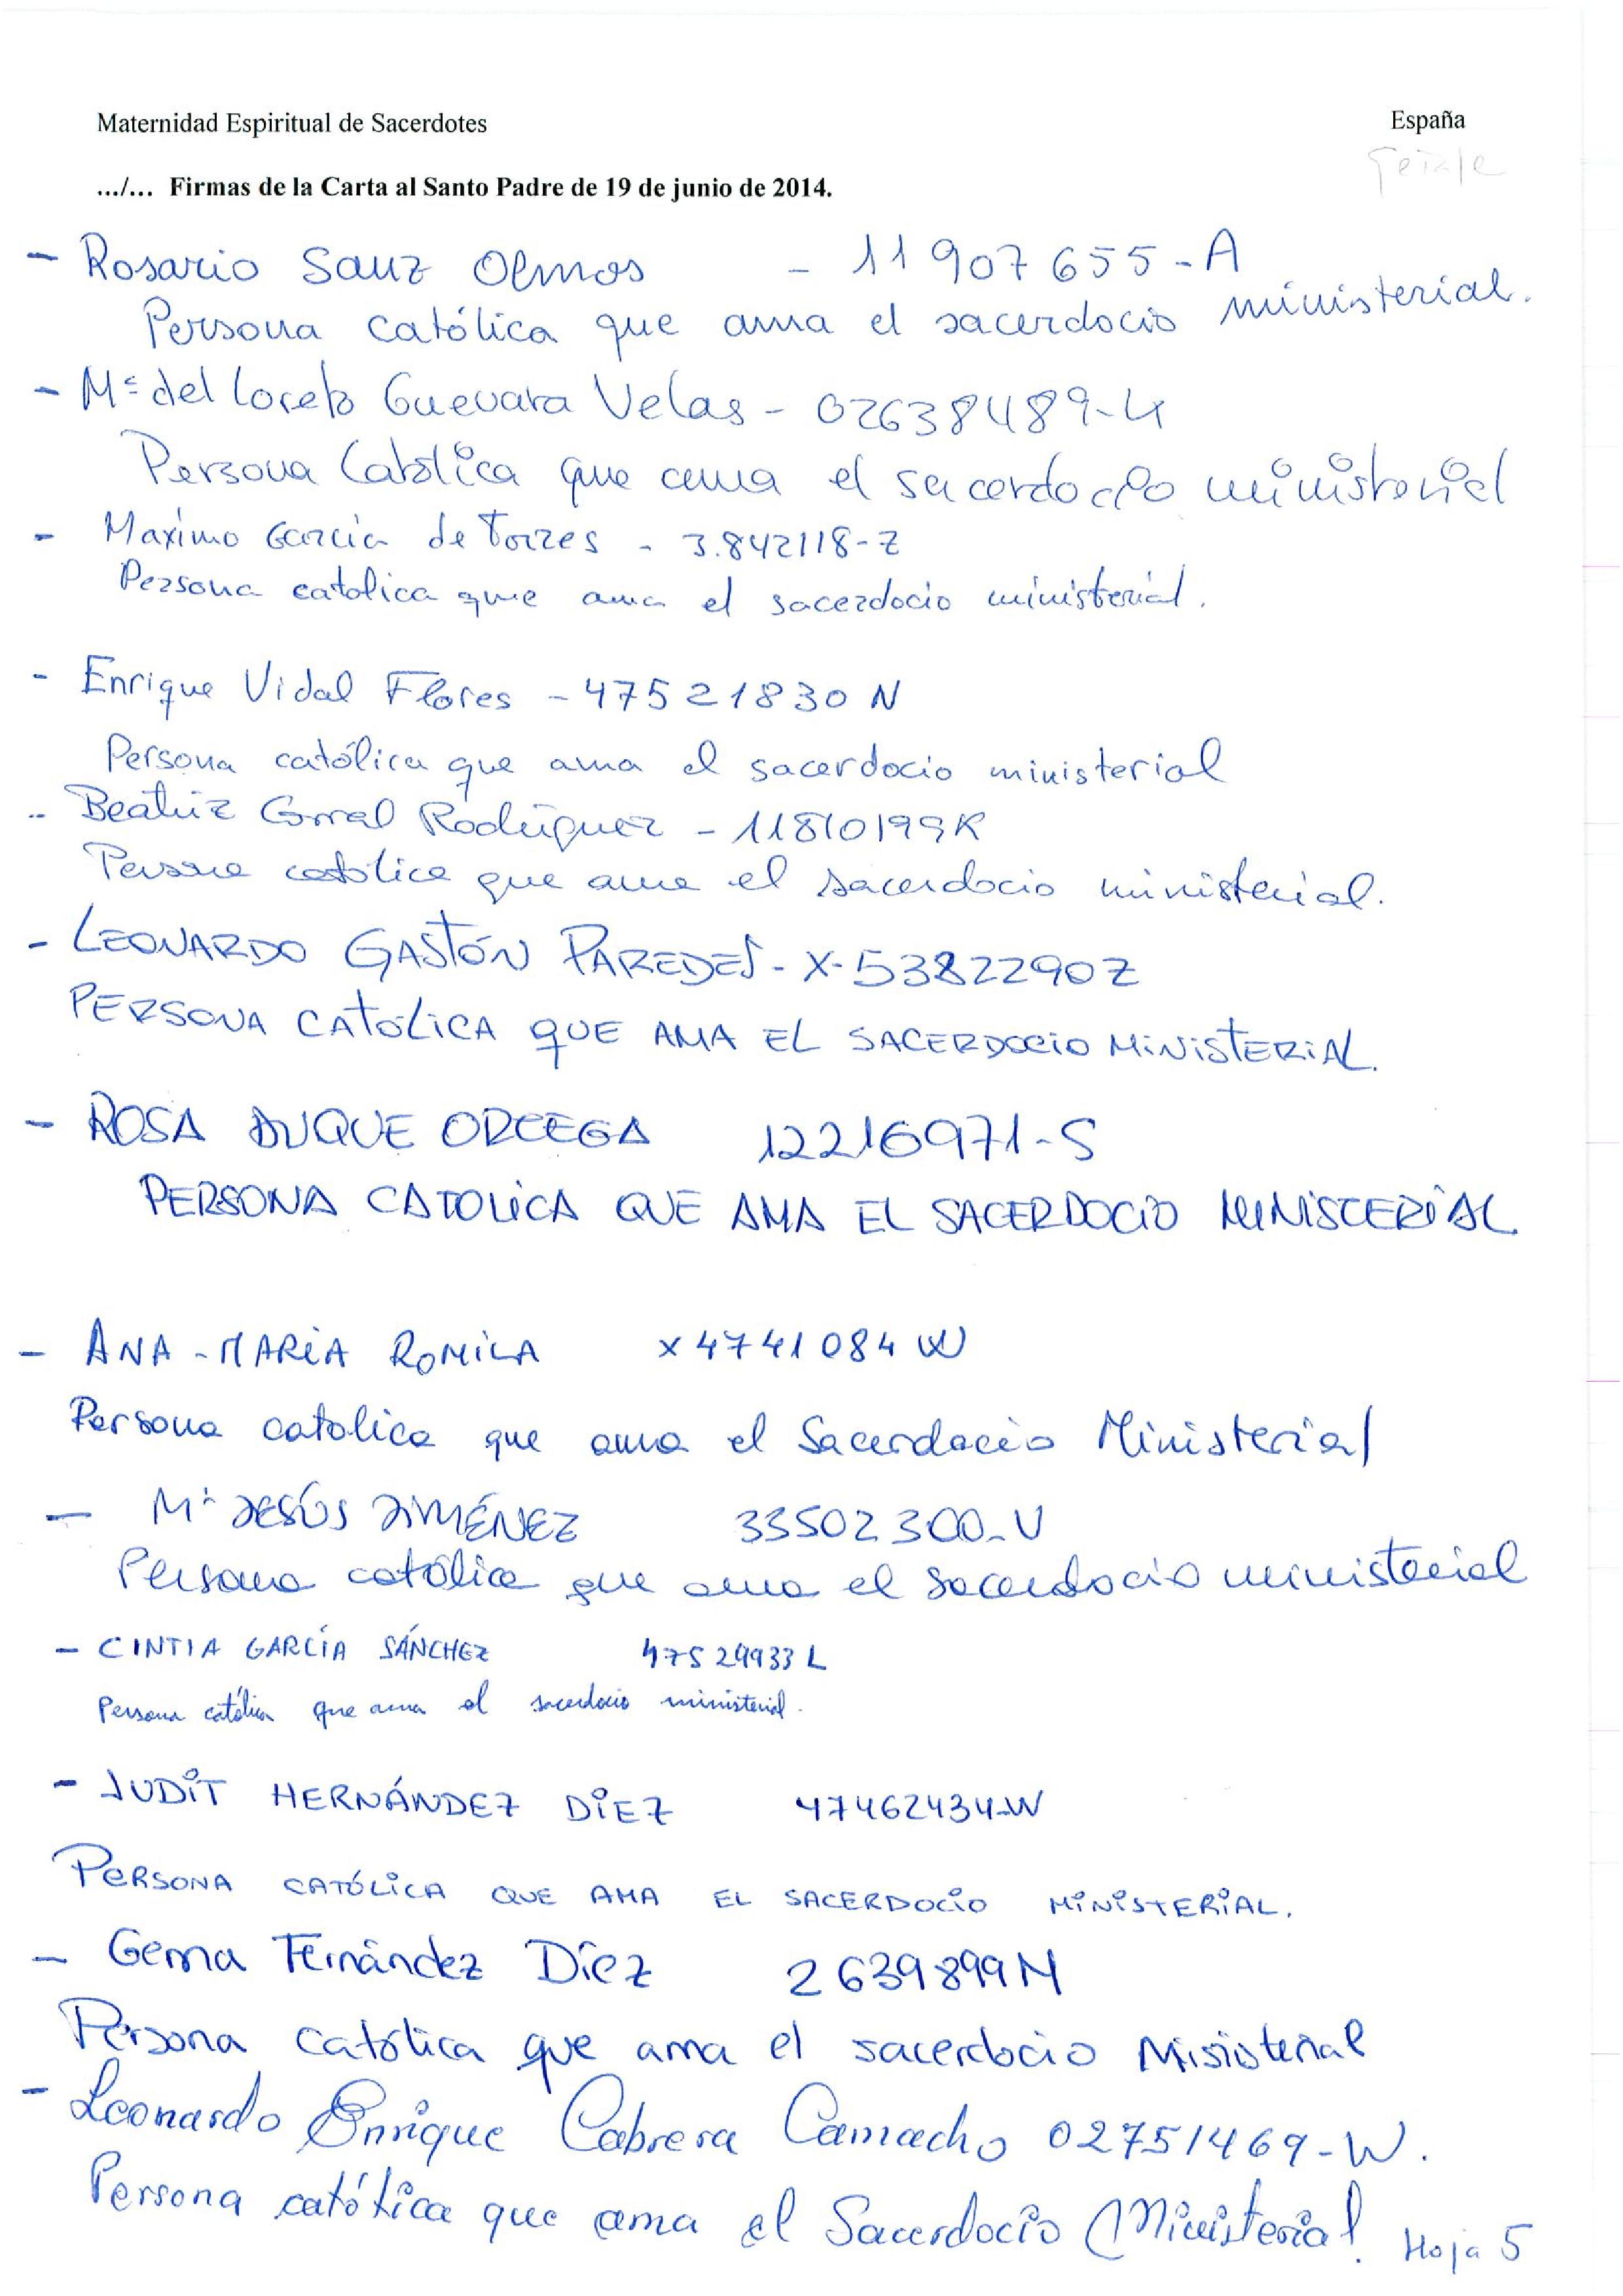 Maternidad Espiritual de Sacerdotes España
Getafe
.../... Firmas de la Carta al Santo Padre de 19 de junio de 2014.
- Rosario Sanz Olmos - 11907655-A
Persona católica que ama el sacerdocio ministerial.
- Mª del Loreto Guevara Velas - 02638489-
Persona Católica que ama el sacerdocio ministerial
- Maximo Garcia de Torres - 3.842118-Z
Persona catolica que ama el sacerdocio ministerial.
- Enrique Vidal Flores - 47521830 N
Persona católica que ama el sacerdocio ministerial
- Beatriz Corral Rodríguez - 11810199K
Persona católica que ama el sacerdocio ministerial.
- LEONARDO GASTÓN PAREDES - X-5382290Z
PERSONA CATÓLICA QUE AMA EL SACERDOCIO MINISTERIAL.
- ROSA DUQUE ORTEGA 12216971-S
PERSONA CATOLICA QUE AMA EL SACERDOCIO MINISTERIAL
- ANA-MARIA ROMILA X4741084W
Persona catolica que ama el Sacerdocio Ministerial
- Mª JESÚS JIMÉNEZ 33502300-V
Persona católica que ama el sacerdocio ministerial
- CINTIA GARCÍA SÁNCHEZ 47529933L
Persona católica que ama el sacerdocio ministerial.
- JUDIT HERNÁNDEZ DIEZ 47462434-W
PERSONA CATÓLICA QUE AMA EL SACERDOCIO MINISTERIAL.
- Gema Fernández Díez 2639899M
Persona católica que ama el sacerdocio Misisterial
- Leonardo Enrique Cabrera Camacho 02751469-W.
Persona católica que ama el Sacerdocio Ministerial.
Hoja 5